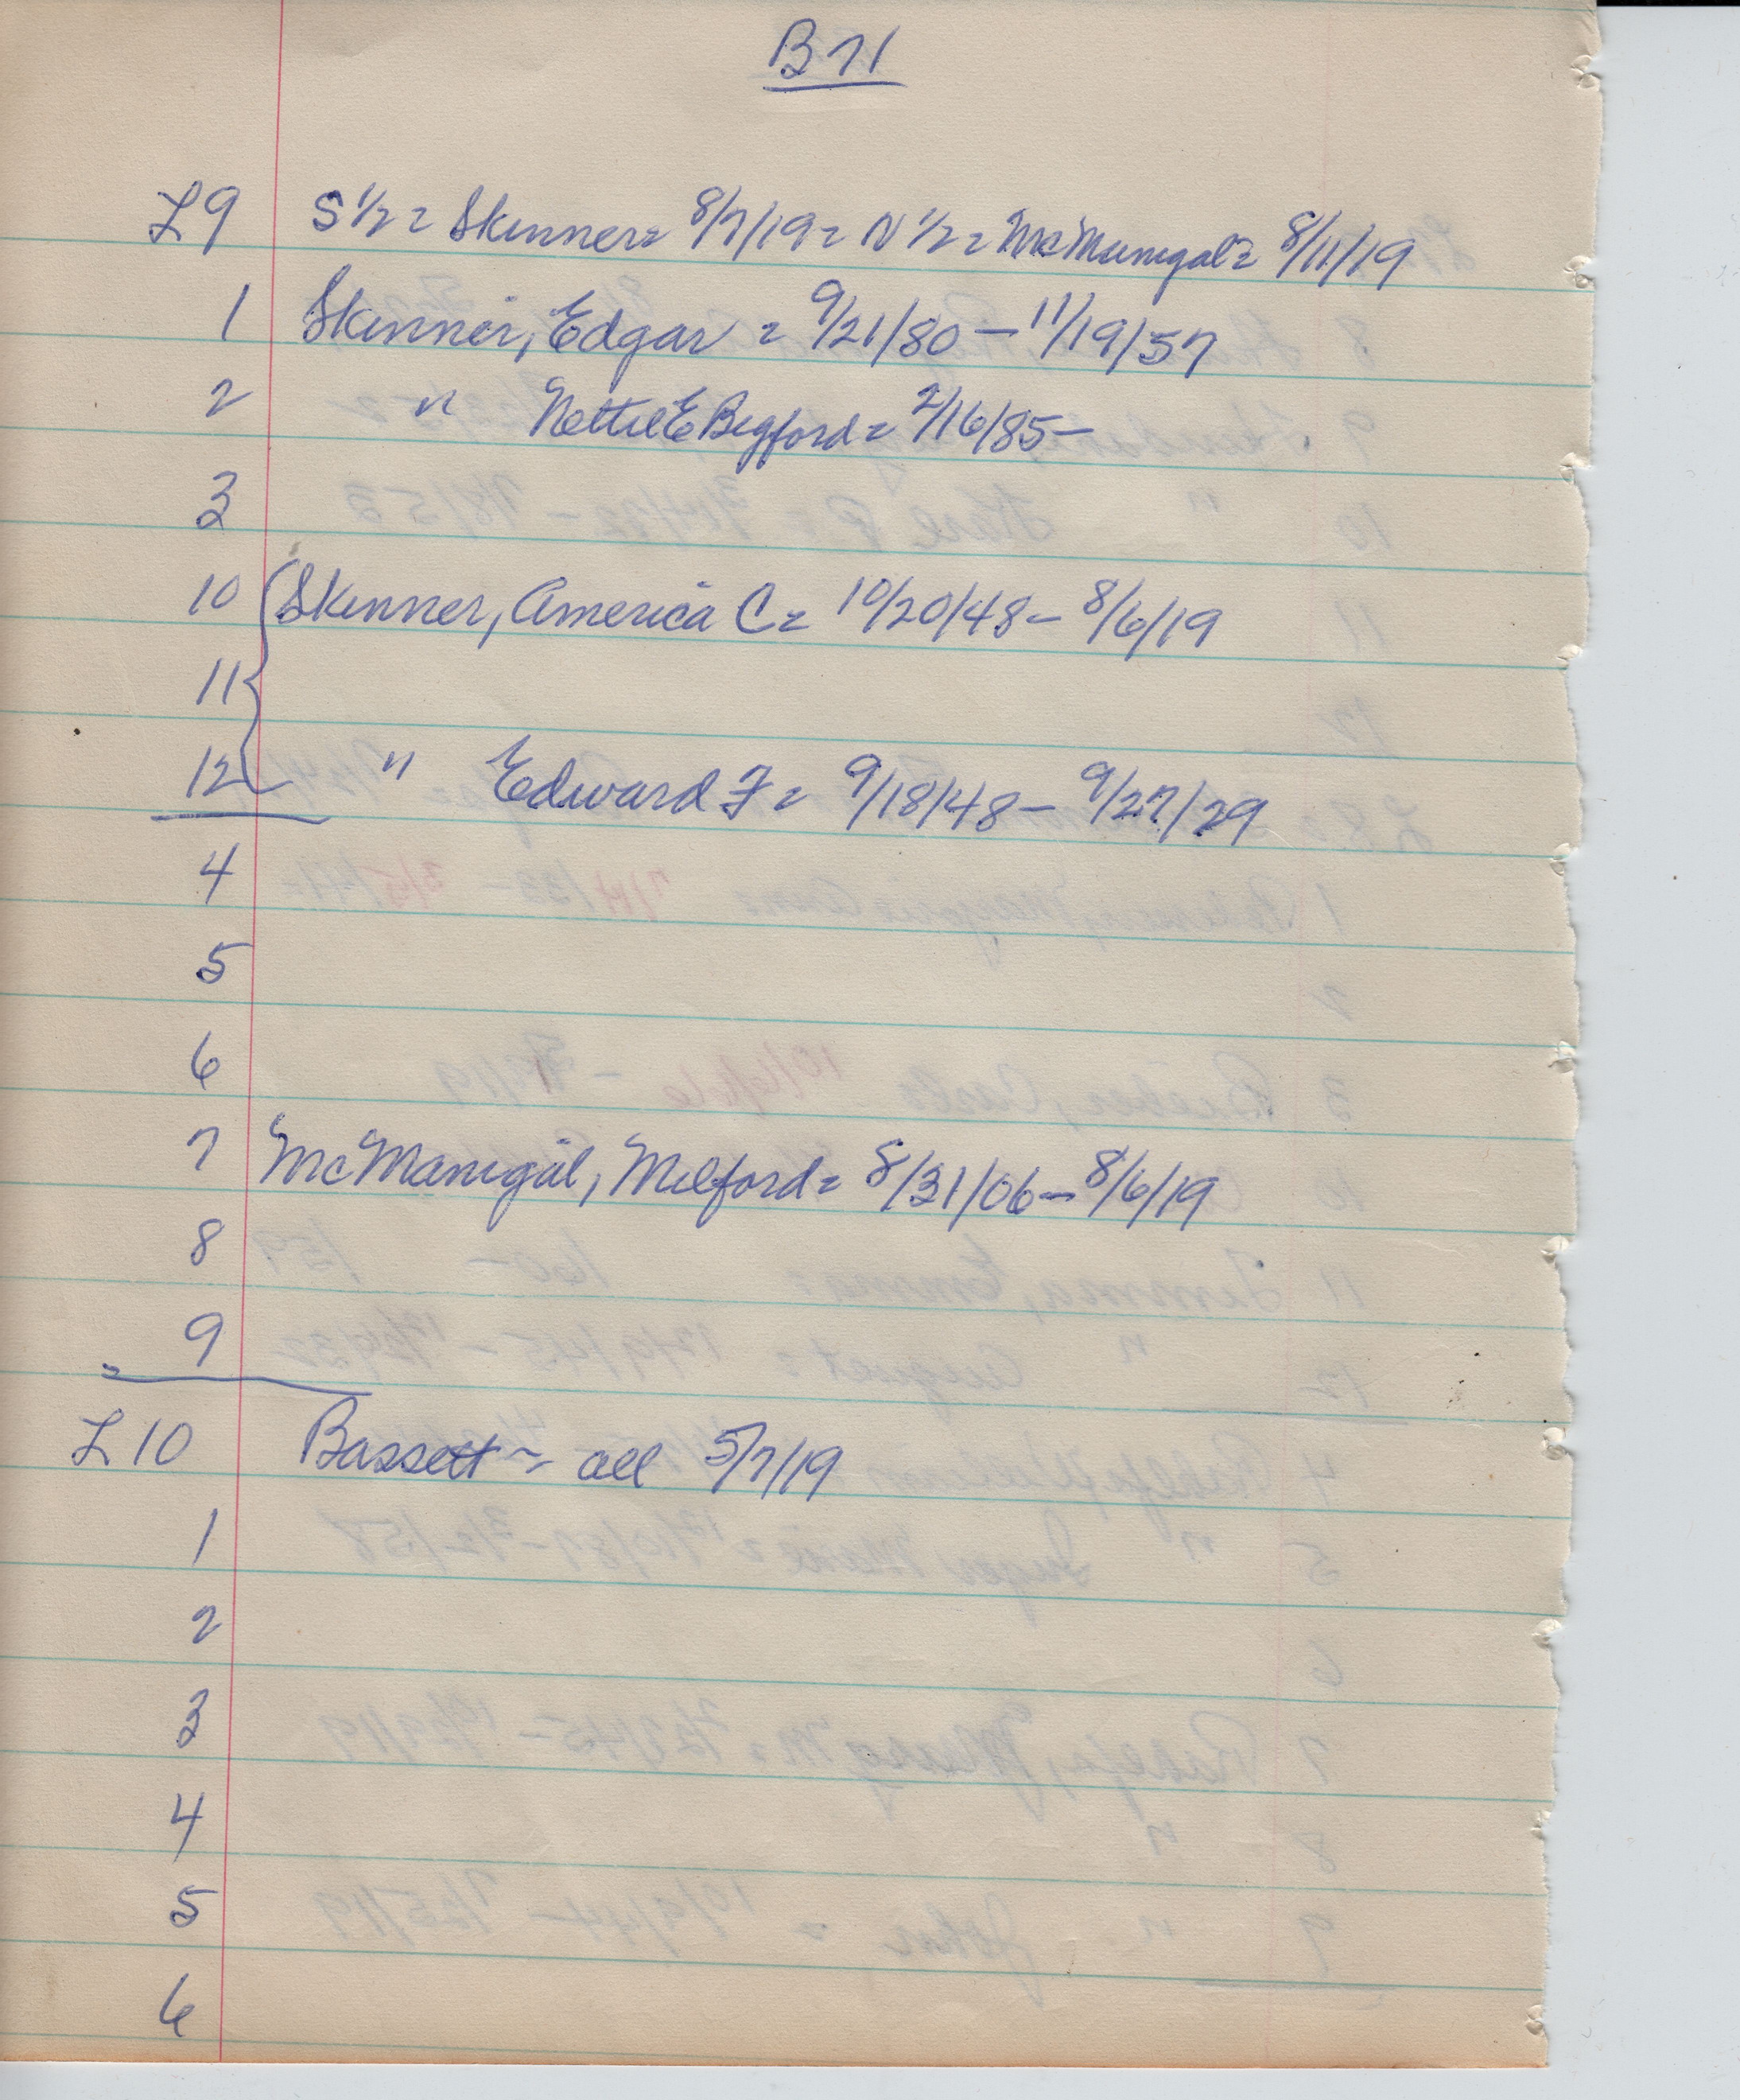 B71
L9 S 1/2 = Skinner = 8/7/19 = N 1/2 = McManigal = 8/11/19
1 Skinner, Edgar = 9/21/80 – 11/19/57
2 " Nettie E Bigford = 2/16/85 –
3
10 Skinner, America C = 10/20/48 – 8/6/19
11
12 " Edward F = 9/18/48 – 9/27/29
4
5
6
7 McManigal, Milford = 8/31/06 – 8/6/19
8
9
L10 Bassett ~ all 5/7/19
1
2
3
4
5
6